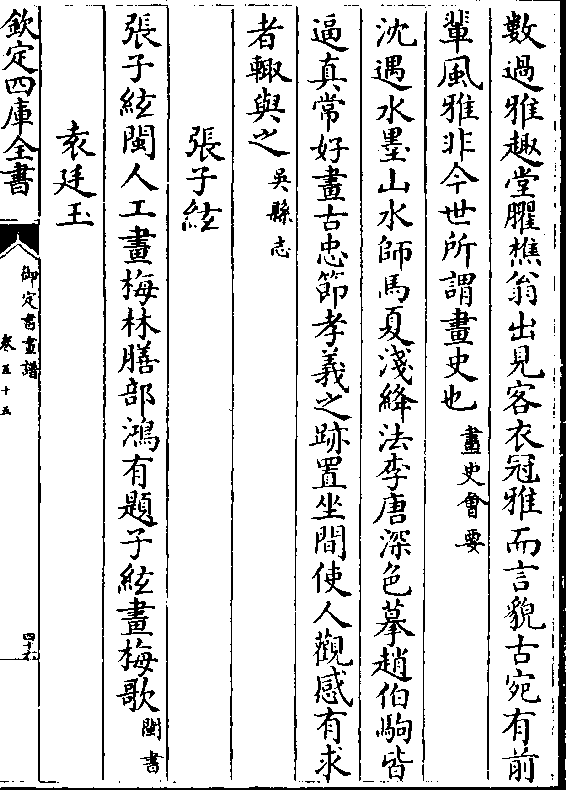 數過雅趣堂臞樵翁出見客衣冠雅而言貌古宛有前
輩風雅非今世所謂畫史也 畫史會要
沈遇水墨山水師馬夏淺絳法李唐深色摹趙伯駒皆
逼真常好畫古忠節孝義之跡置坐間使人觀感有求
者輙與之 吳縣志
張子絃
張子絃閩人工畫梅林膳部鴻有題子絃畫梅歌 閩書
袁廷玉
欽定四庫全書
御定書畫譜
卷五十五
四十六